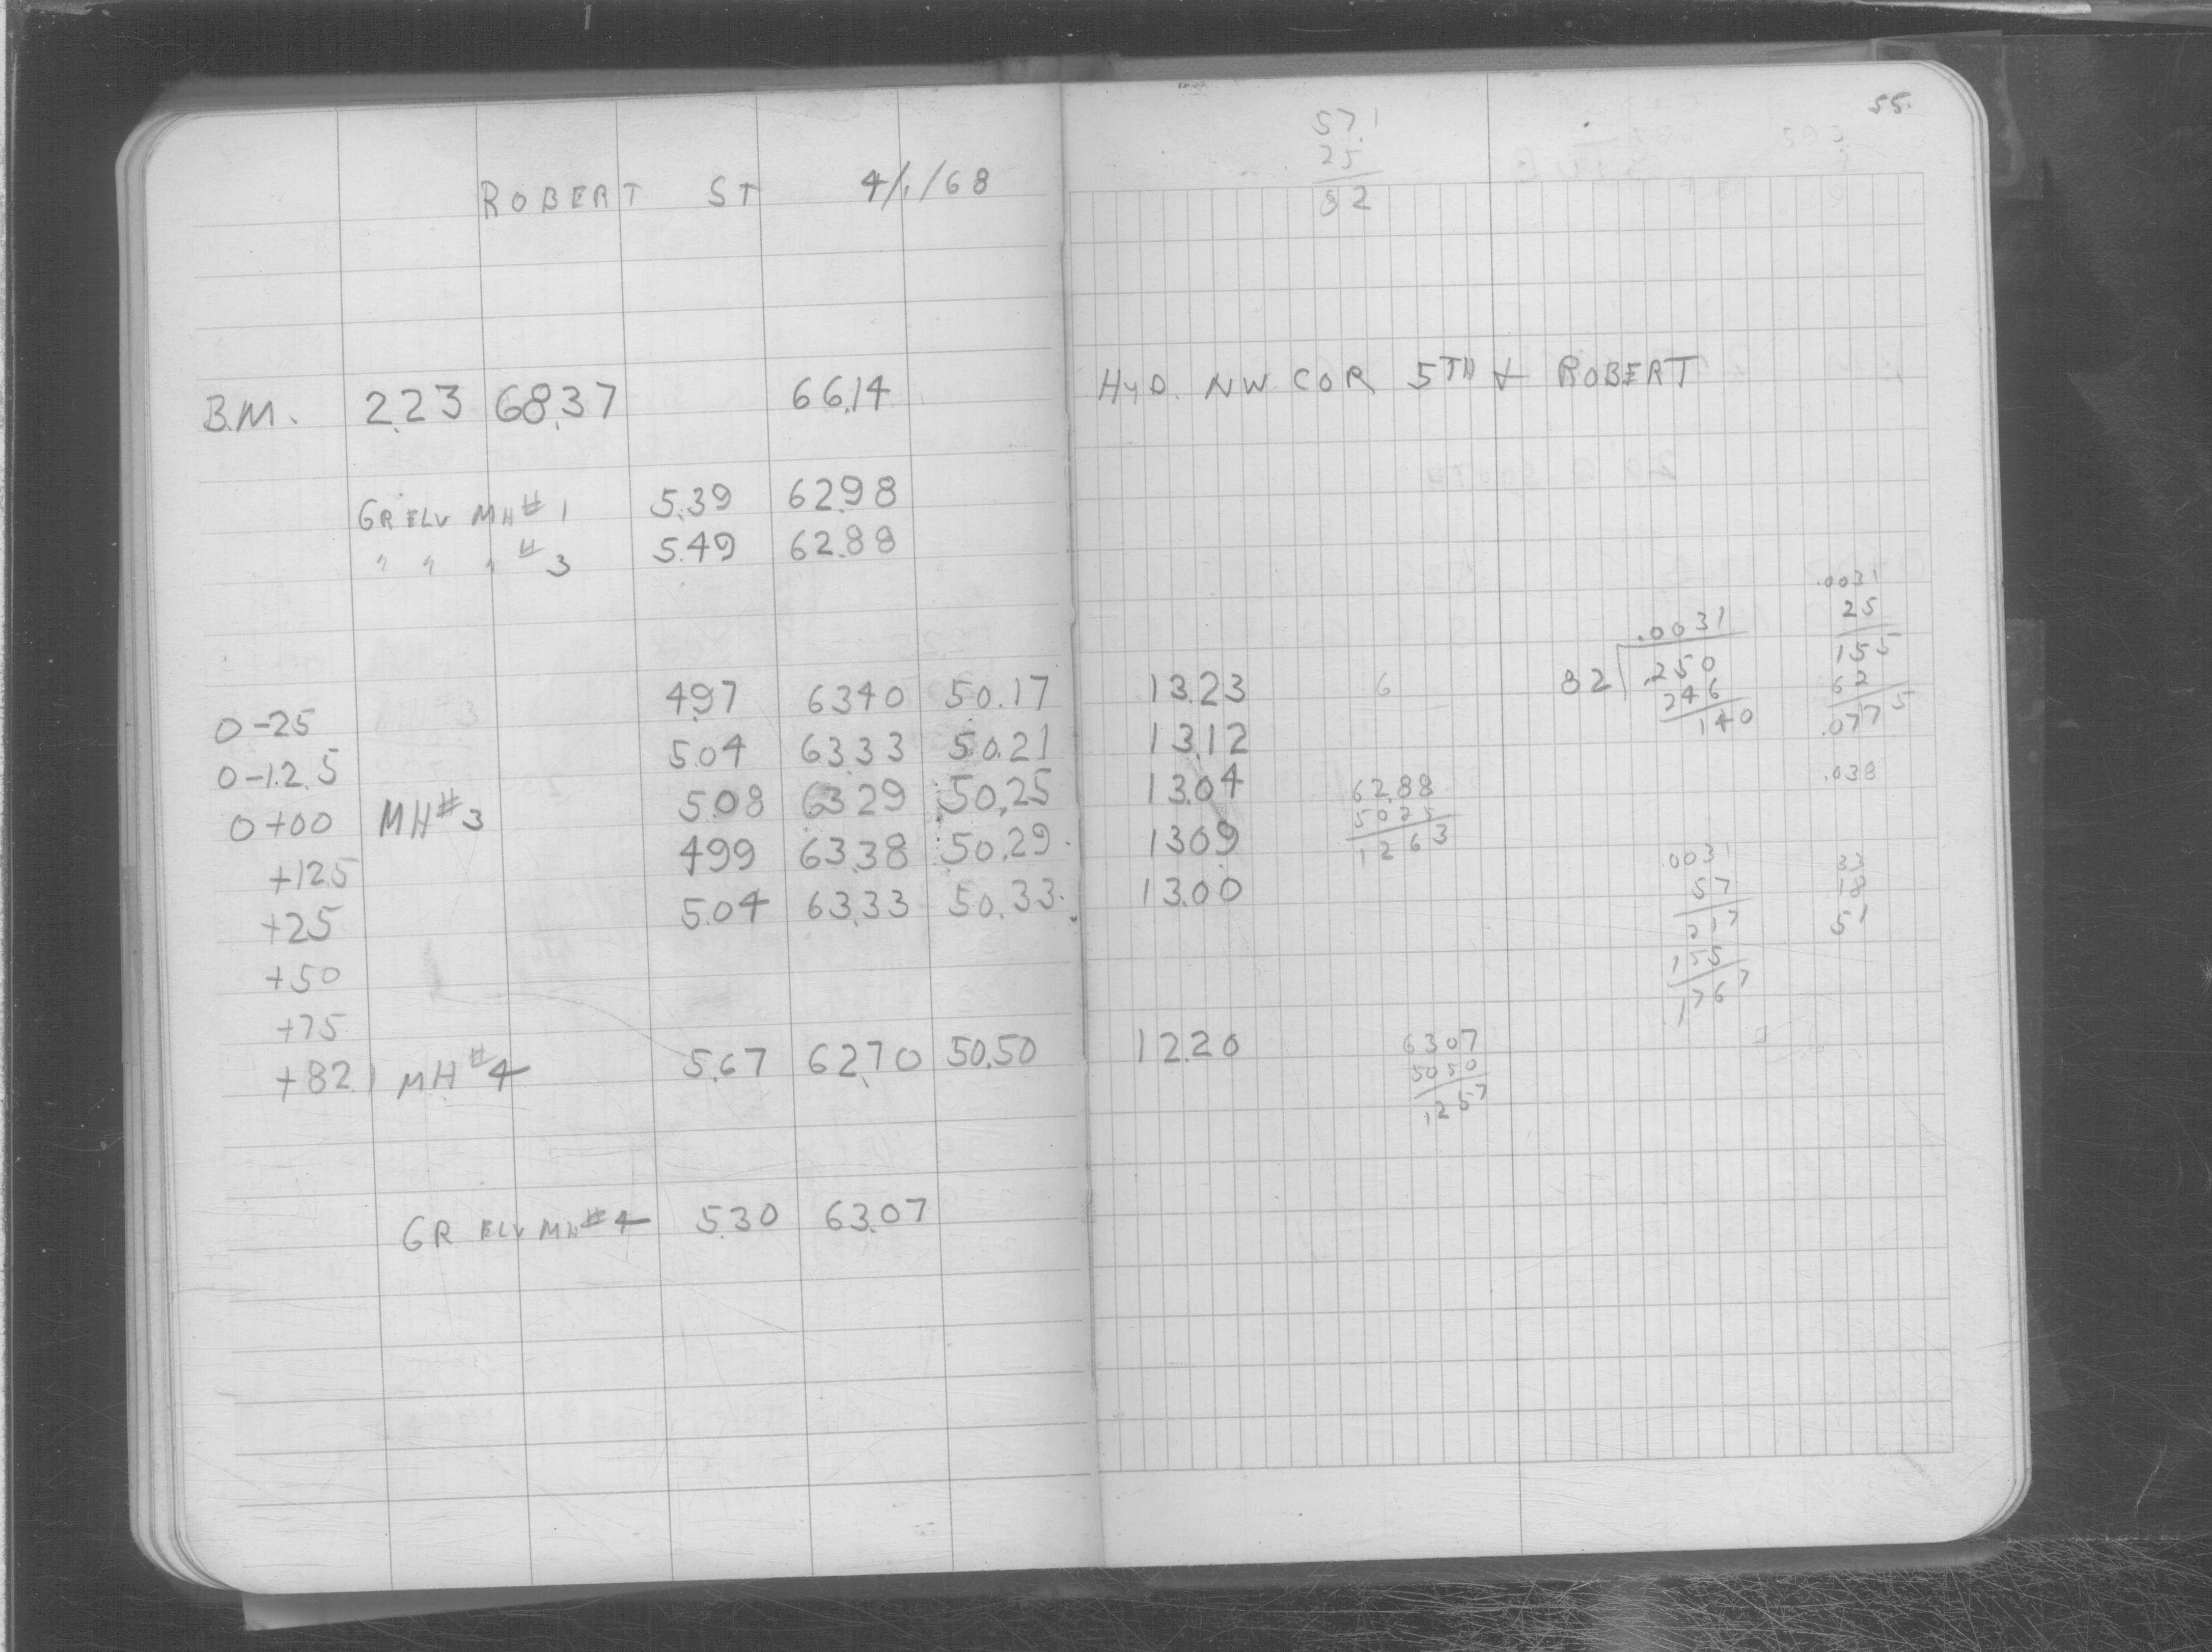 ROBERT ST 4/1/68
B.M. 2.23 68.37 66.14
GR ELV MH #1 5.39 62.98
" " " #3 5.49 62.88
0-25 4.97 63.40 50.17
0-12.5 5.04 63.33 50.21
0+00 MH #3 5.08 63.29 50.25
+12.5 4.99 63.38 50.29
+25 5.04 63.33 50.33
+50
+75
+82.1 MH #4 5.67 62.70 50.50
GR ELV MH #4 5.30 63.07
55.
57.1
25
82
HYD. NW COR 5TH & ROBERT
13.23 6
13.12
13.04
13.09
13.00
12.20
62.88
50.25
12 63
63 07
50 50
12 57
.0031
82 .250
246
140
.0031
25
155
62
.0775
.038
.0031
57
217
155
.1767
33
18
51